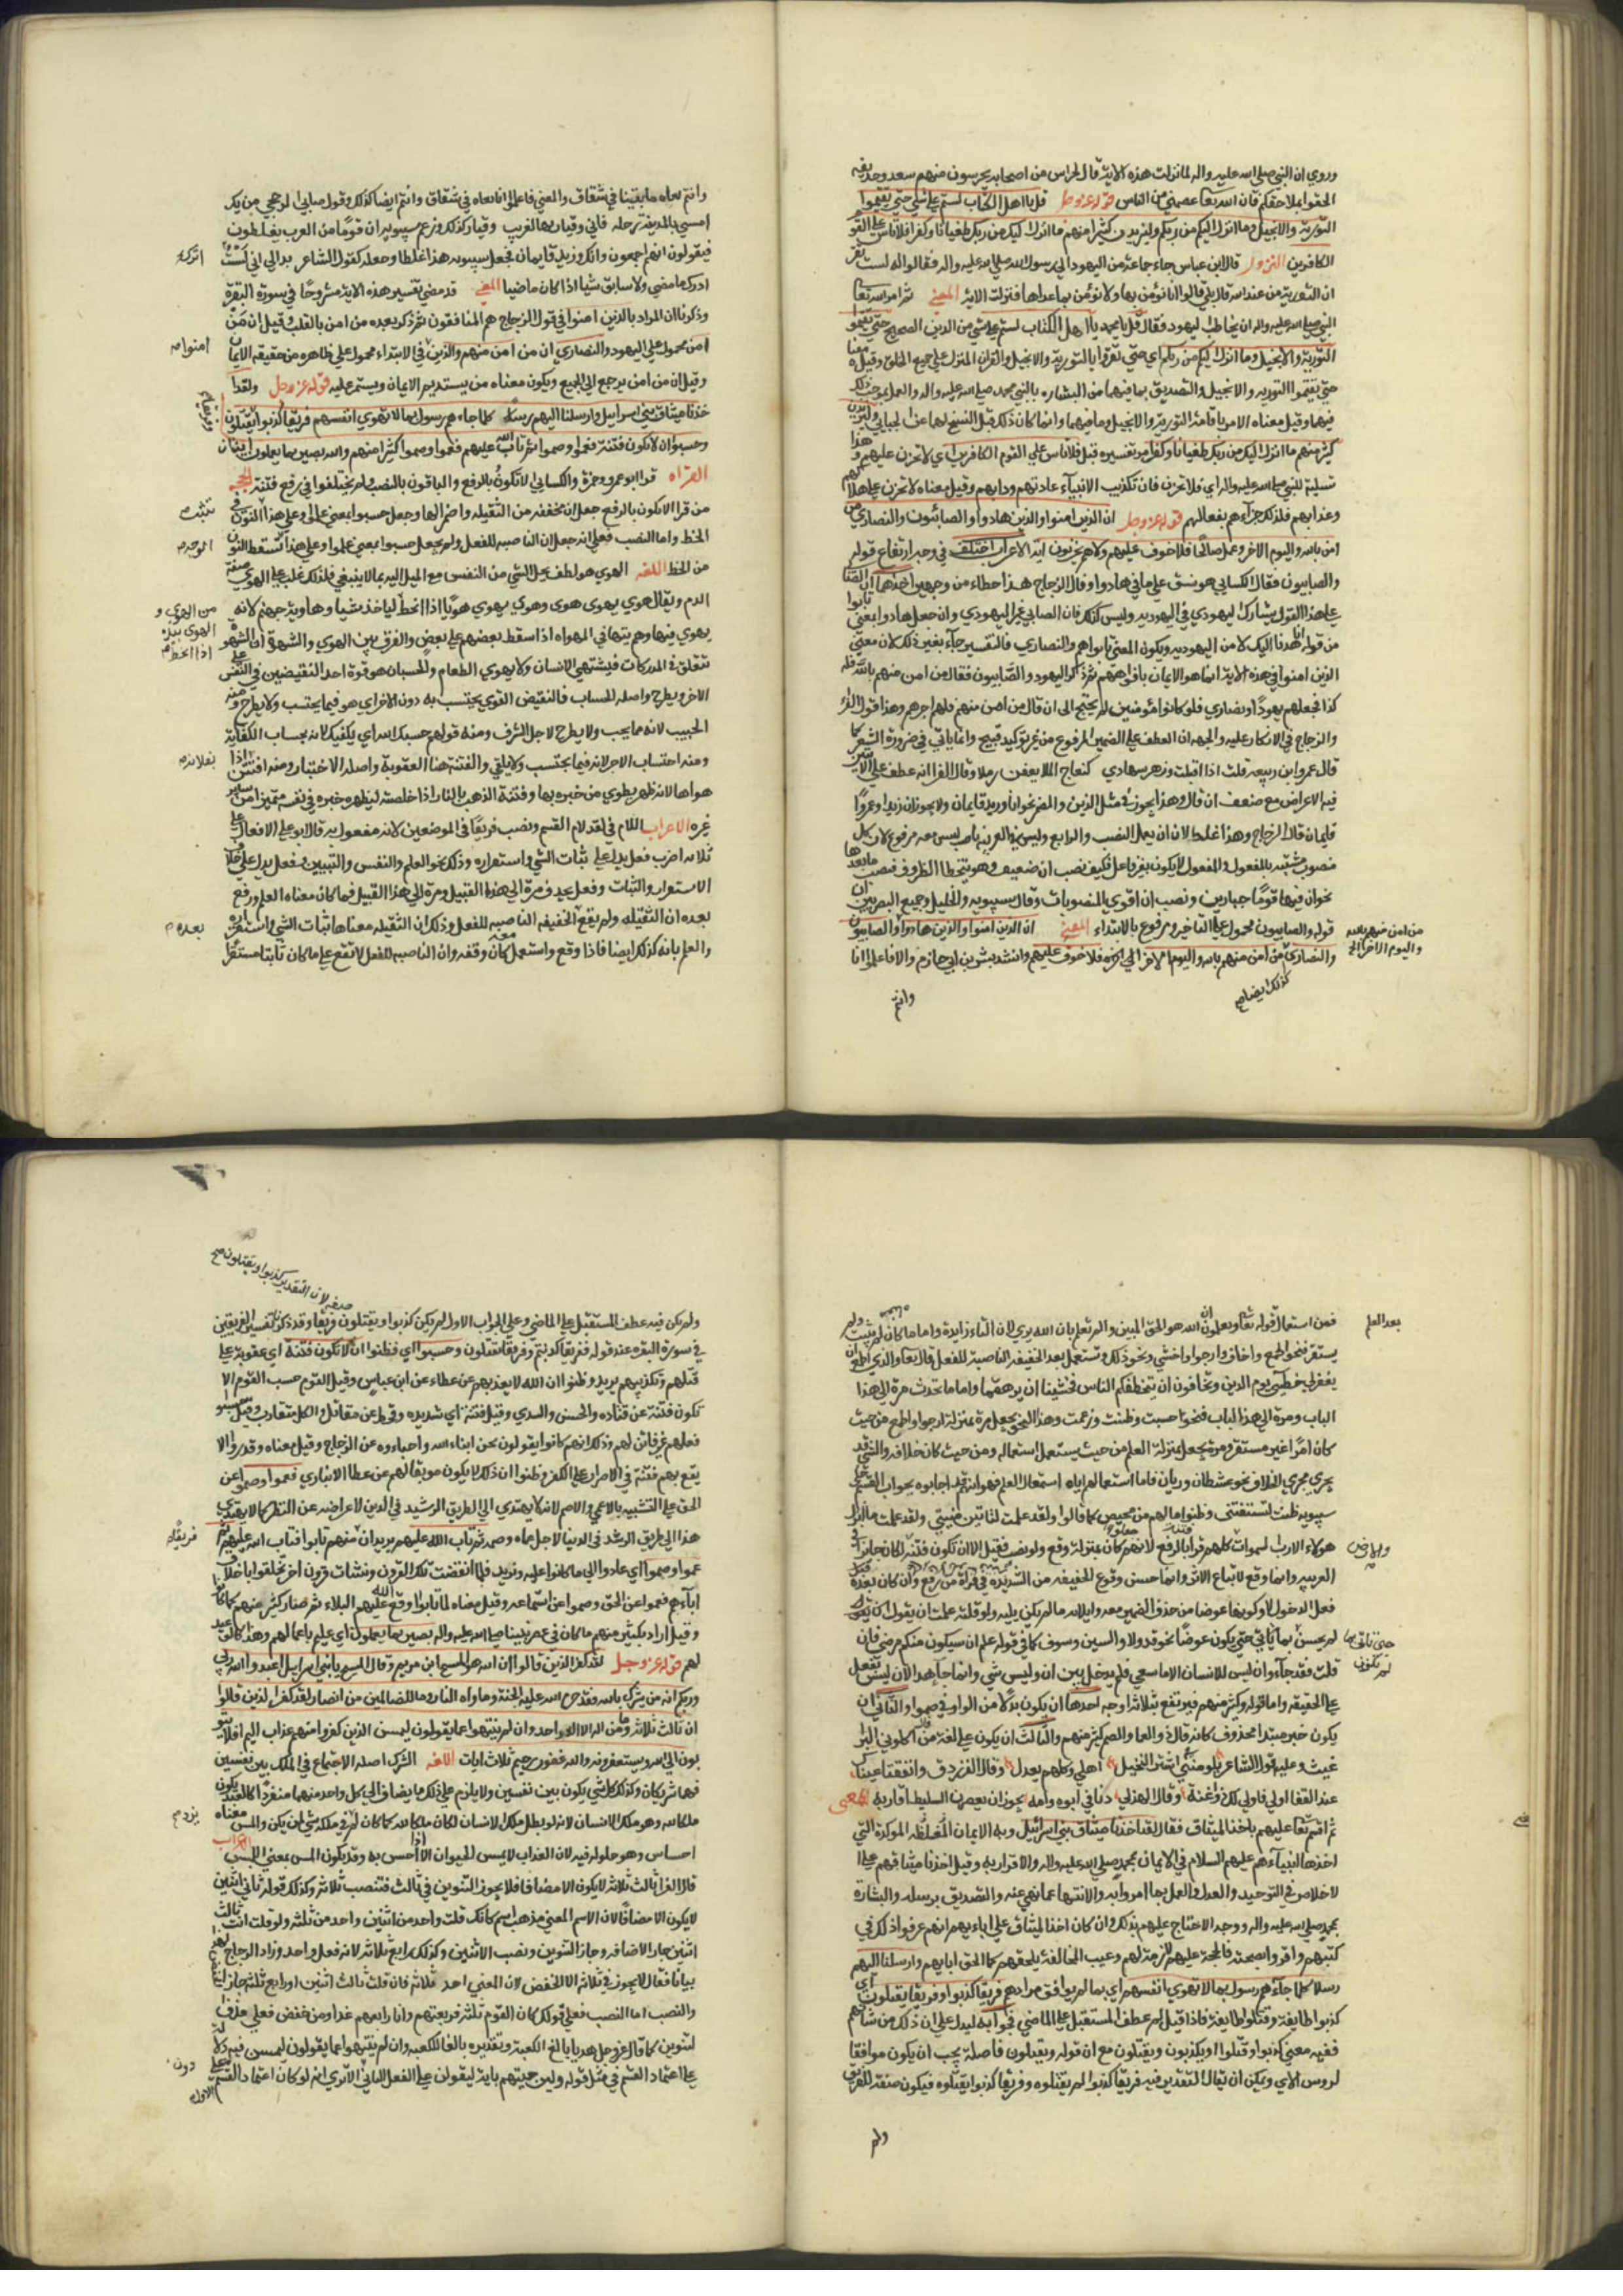 وروي ان النبي صلى الله عليه واله لما نزلت هذه الاية قال لحراس من اصحابه يحرسون منهم سعد وحذيفه
الحقوا بملاحقكم فان الله تعا عصمني من الناس قوله عز وجل قل يا اهل الكتاب لستم على شي حتى تقيموا
التورية والانجيل وما انزل اليكم من ربكم وليزيدن كثيرا منهم ما انزل اليك من ربك طغيانا وكفرا فلا تاس على القو
الكافرين النزول قال ابن عباس جاء جماعة من اليهود الى رسول الله صلى الله عليه واله فقالوا له الست تقر
ان التورية من عند الله قال بلى قالوا فانا نؤمن بها ولا نؤمن بما عداها فنزلت الاية المعني ثم امر الله تعا
النبي صلى الله عليه واله ان يخاطب اليهود فقال قل يا محمد يا اهل الكتاب لستم على شي من الدين الصحيح حتى تقيموا
التورية والانجيل وما انزل اليكم من ربكم اي حتى تقروا بالتورية والانجيل والقران المنزل على جميع الخلق وقيل معنا
حتى تقيموا التوريه والانجيل بالتصديق بما فيهما من البشارة بالنبي محمد صلى الله عليه واله والعمل بما يوجب ذلك
فيهما وقيل معناه الامر باقامة التورية والانجيل وما فيهما وانما كان ذلك قبل النسخ لهما عن الجبائي وليزيدن
كثيرا منهم ما انزل اليك من ربك طغيانا وكفرا مر تفسيره قبل فلا تاس على القوم الكافرين اي لا تحزن عليهم وهذا
تسلية للنبي صلى الله عليه واله اي فلا تحزن فان تكذيب الانبياء عادتهم ودابهم وقيل معناه لا تحزن على هلاكهم
وعذابهم فذلك جزاءهم بفعالهم قوله عز وجل ان الذين امنوا والذين هادوا والصابئون والنصارى من
امن بالله واليوم الاخر وعمل صالحا فلا خوف عليهم ولا هم يحزنون اية الاعراب اختلف في وجه ارتفاع قوله
والصابيون فقال الكسائي هو نسق على ما في هادوا وقال الزجاج هذا خطاء من وجهين احدهما ان الصابي
على هذا القول يشارك اليهودي في اليهودية وليس كذلك فان الصابي غير اليهودي وان جعل هادوا بمعنى تابوا
من قوله انا هدنا اليك لا من اليهودية ويكون المعنى تابوا هم والنصارى فالتفسير جاء بغير ذلك لان معنى
الذين امنوا في هذه الاية انما هو الايمان بافواههم ثم ذكر اليهود والصابيون فقال من امن منهم بالله فله
كذا فجعلهم يهودا ونصارى فلو كانوا مؤمنين لم يحتج الى ان قال من امن منهم فلهم اجرهم وهذا قول الفراء
والزجاج في الانكار عليه والجهة ان العطف على الضمير المرفوع من غير توكيد قبيح وانما ياتي في ضرورة الشعر كما
قال عمرو ابن ربيعه قلت اذا اقبلت وزهر تهادي كنعاج الملا تعفن رملا وقال الفراء انه عطف على ما لم يتبين
فيه الاعراض مع ضعف ان قال وهذا يجوز في مثل الذين والمضمر نحو اني وزيد قايمان ولا يجوز ان زيدا وعمروا
قايمان قال الزجاج وهذا غلط لان ان يعمل النصب والرفع وليس في العربية ناصب ليس معه مرفوع لان كل
منصوب مشبه بالمفعول والمفعول لا يكون بغير فاعل فكيف نصب ان ضعيف وهو يتخطا الظروف فنصب ما بعدها
نحو ان فيها قوما جبارين ونصب ان اقوى المنصوبات وقال سيبويه والخليل وجميع البصريين ان
قوله والصابيون محمول على التاخير ومرفوع بالابتداء المعنى ان الذين امنوا والذين هادوا والصابيون
والنصارى من امن منهم بالله واليوم الاخر الى اخره فلا خوف عليهم وانشد بشر بن ابي حازم والا فاعلموا انا
من امن منهم بالله
واليوم الاخر الخ
كذلك ايضا صح
وانتم
وانتم بغاه ما بقينا في شقاق والمعنى فاعلموا انا بغاة في شقاق وانتم ايضا كذلك وقول ضابئ البرجمي من يك
امسى بالمدينة رحله فاني وقيار بها لغريب وقيار كذلك وزعم سيبويه ان قوما من العرب يغلطون
فيقولون انهم اجمعون وانك وزيد قايمان فجعل سيبويه هذا غلطا وجعله كقول الشاعر بدا لي اني لست
ادرك ما مضى ولا سابق شيا اذا كان ماضيا المعني قد مضى تفسير هذه الاية مشروحا في سورة البقرة
وذكرنا ان المراد بالذين امنوا في قول الزجاج هم المنافقون ثم ذكر بعده من امن بالقلب وقيل ان من
امن محمول على اليهود والنصارى ان من امن منهم والذين في الابتداء محمول على ظاهره من حقيقه الايمان
وقيل ان من امن يرجع الى الجميع ويكون معناه من يستديم الايمان ويستمر عليه قوله عز وجل ولقد ا
خذنا ميثاق بني اسرايل وارسلنا اليهم رسلا كلما جاءهم رسول بما لا تهوى انفسهم فريقا كذبوا وفريقا يقتلون
وحسبوا ان لا تكون فتنة فعموا وصموا ثم تاب الله عليهم فعموا وصموا كثيرا منهم والله بصير بما يعملون ايتان
القراه قرا ابو عمرو وحمزة والكسائي الا تكون بالرفع والباقون بالنصب ولم يختلفوا في رفع فتنة الحجة
من قرا الا تكون بالرفع جعل ان مخففه من الثقيله واضمر الها وجعل حسبوا بمعنى علموا وعلى هذا النون في
الخط واما النصب فعلى انه جعل ان الناصبه للفعل ولم يجعل حسبوا بمعنى علموا وعلى هذا تسقط النون
من الخط اللغه الهوى هو لطف محل الشي من النفس مع الميل اليه بما لا ينبغي فلذلك غلب على الهوى صفة
الذم ويقال هوى يهوى هوى وهوى يهوي هويا اذا انحط لياخذ شيا وهاوية جهنم لانه
يهوي فيها وهم يتهاوون في المهواه اذا سقط بعضهم على بعض والفرق بين الهوى والشهوة ان الشهوة
تتعلق في المدركات فيشتهي الانسان ولا يهوى الطعام والحسبان هو قوة احد النقيضين في النفس على
الاخر ويطرح واصله الحساب فالنقيض القوي يحتسب به دون الاخر اي هو فيما يحتسب ولا يطرح ومنه
الحبيب لانه مما يحب ولا يطرح لاجل الشرف ومنه قولهم حسبك الله اي يكفيك لانه بحساب الكفاية
ومنه احتساب الاجر لانه فيما يحتسب ولا يلقى والفتنة هنا العقوبة واصله الاختبار ومنه افتتن فلان بفلانة اذا
هواها لانه ظهر يطوى من خبره بها وفتنة الذهب بالنار اذا خلصته ليظهر خبره في نفسه متميزا من ساير
غيره الاعراب اللام في لقد لام القسم ونصب فريقا في الموضعين لانه مفعول به قال ابو علي الافعال على
ثلاثه اضرب فعل يدل على ثبات الشي واستقراره وذلك نحو العلم والنفس والتبيين وفعل يدل على خلاف
الاستقرار والثبات وفعل يجذب مرة الى هذا القبيل ومرة الى هذا القبيل فما كان معناه العلم ورفع
بعده ان الثقيله ولم يقع الخفيفه الناصبه للفعل وذلك ان الثقيله معناها اثبات الشي واستقراره
والعلم بانه كذلك ايضا فاذا وقع واستعمل معه كان وفقه وان الناصبه للفعل لا تقع على ما كان ثابتا مستقرا
امنوا صح
تثبت
من الهوى و
بفلانة
بعده
بعد العلم
فمن استعمال قوله تعا ويعلمون ان الله هو الحق المبين والم تعلم بان الله يرى لان الباء زايدة واما ما كان لم يثبت ولم
يستقر فنحو اطمع واخاف وارجوا واخشى ونحو ذلك وتستعمل بعد الخفيفه الناصبة للفعل قال تعا والذي اطمع ان
يغفر لي خطيئتي يوم الدين وتخافون ان يتخطفكم الناس فخشينا ان يرهقهما واما ما تحدث مرة الى هذا
الباب ومرة الى هذا الباب فنحو حسبت وظننت وزعمت وهذا النحو يجعل مرة بمنزلة ارجوا واطمع من حيث
كان امرا غير مستقر ومرة يجعل بمنزلة العلم من حيث يستعمل استعماله ومن حيث كان خلافه والشي قد
يجري مجرى الخلاف نحو عطشان وريان فاما استعمالهم اياه استعمال العلم فهو انهم قد اجابوه بجواب القسم حكى
سيبويه ظننت لتسبقنني وظنوا ما لهم من محيص كما قالوا ولقد علمت لتاتين منيتي ولقد علمت ما انزل
هولاء الا رب السموات كلهم قرا بالرفع لانهم كان بمنزلة وقع ولو نصب فقيل الا ان تكون فتنة لكان جايزا في
العربيه وانما وقع لاتباع الاثر وانما حسن وقوع الخفيفه من الشديدة في قراة من رفع وان كان بعده
فعل لدخول لا وكونها عوضا من حذف الضمير معه وايلائه ما لم يكن يليه ولو قلت علمت ان يقول
لم يحسن بما ياتي حتى يكون عوضا نحو قد ولا والسين وسوف كما في قوله علم ان سيكون منكم مرضى فان
قلت فقد جاء وان ليس للانسان الا ما سعى فلم يدخل بين ان وليس شي وانما جاء هذا لان ليس بفعل
على الحقيقه واما قوله وكثير منهم فيرتفع بثلاثه اوجه احدها ان يكون بدلا من الواو في صموا والثاني ان
يكون خبر مبتدا محذوف كانه قال ذو العما والصم كثير منهم والثالث ان يكون على لغة من قال اكلوني البرا
غيث وعليه قول الشاعر يلومنني في اشترا النخيل اهلي وكلهم يعدل وقال الفرزدق والفتا عينا
عند القفا اولى فاولى لك ذا واقية وقال الهذلي دنانى ابوه وامه بحوران يعصرن السليط اقاربه المعنى
ثم اقسم تعا عليهم باخذ الميثاق فقال لقد اخذنا ميثاق بني اسرائيل وبه الايمان المغلظه الموكدة التي
اخذها انبياءهم عليهم السلام في الايمان بمحمد صلى الله عليه واله والاقرار به وقيل اخذنا ميثاقهم على ا
لاخلاص في التوحيد والعدل والعمل بما امروا به والانتهاء عما نهى عنه والتصديق برسله والبشارة
بمحمد صلى الله عليه واله ووجه الاحتجاج عليهم بذلك وان كان اخذ الميثاق على ابايهم انهم عرفوا ذلك في
كتبهم واقروا بصحته فالحجة عليهم لازمة لهم وعيب المخالفة يلحقهم كما لحق ابايهم وارسلنا اليهم
رسلا كلما جاءهم رسول بما لا تهوى انفسهم اي بما لم يوافق مرادهم فريقا كذبوا وفريقا يقتلون اي
كذبوا طايفة وقتلوا طايفة فاذا قيل لم عطف المستقبل على الماضي فجوابه ليدل على ان ذلك من شانهم
ففيه معنى كذبوا وقتلوا او يكذبون ويقتلون مع ان قوله ويقتلون فاصلة يجب ان يكون موافقا
لروس الاي ويمكن ان يقال التقدير فيه فريقا كذبوا لم يقتلوه وفريقا كذبوا يقتلوه فيكون صفة للفريق
ولم
لان التقدير كذبوا ويقتلون صح
ولم يكن فيه عطف المستقبل على الماضي وعلى الجواب الاول لم يكن كذبوا ويقتلون فريقا وقد ذكرنا تفسير الفريقين
في سورة البقره عند قوله ففريقا كذبتم وفريقا تقتلون وحسبوا اي فظنوا ان لا تكون فتنة اي عقوبة على
قتلهم وتكذيبهم يريد وظنوا ان الله لا يعذبهم عن عطاء عن ابن عباس وقيل القوم حسب القوم الا
تكون فتنة عن قتاده والحسن والسدي وقيل فتنة اي شديده وقحط عن مقاتل والكل متقارب وقيل حسبوا
فعلهم غير فاتن لهم وذلك انهم كانوا يقولون نحن ابناء الله واحباءوه عن الزجاج وقيل معناه وقدروا الا
يقع بهم فتنة في الاصرار على الكفر وظنوا ان ذلك لا يكون موبقا لهم عن عطا الانباري فعموا وصموا عن
الحق على التشبيه بالاعمى والاصم لانه لا يهتدي الى الطريق الرشيد في الدين لاعراضه عن النظر كما لا يهتدي
هذا الى طريق الرشد في الدنيا لاجل عماه وصممه ثم تاب الله عليهم يريد ان منهم تابوا فتاب الله عليهم ثم
عموا وصموا اي عادوا الى ما كانوا عليه ونريد فلما انقضت تلك القرون ونشات قرون اخر تخلقوا باخلاق
اباءهم فعموا عن الحق وصموا عن استماعه وقيل معناه لما تابوا وقع الله عليهم البلاء ثم صار كثير منهم كما كانوا
وقيل اراد بكثير منهم ما كان في عصر نبينا صلى الله عليه واله بصير بما يعملون اي عليم باعمالهم وهذا كالتوعيد
لهم قوله عز وجل لقد كفر الذين قالوا ان الله هو المسيح ابن مريم وقال المسيح يا بني اسرايل اعبدوا الله ربي
وربكم انه من يشرك بالله فقد حرم الله عليه الجنة وماواه النار وما للظالمين من انصار لقد كفر الذين قالوا
ان ثالث ثلاثة وما من اله الا اله واحد وان لم ينتهوا عما يقولون ليمسن الذين كفروا منهم عذاب اليم افلا يتو
بون الى الله ويستغفرونه والله غفور رحيم ثلاث ايات اللغه الشرك اصله الاجتماع في الملك بين نفسين
فهما شريكان وكذلك كل شي يكون بين نفسين ولا يلزم على ذلك ما يضاف الى كل واحد منهما منفردا كالعبد يكون
ملكا لله وهو ملك الانسان لانه لو بطل ملك الانسان لكان ملكا لله كما كان لم يزد في ملكه شي لم يكن والمس معناه
احساس وهو حلوله فيه لان العذاب لا يمس الحيوان الا احس به وقد يكون المس بمعنى اللمس الاعراب
قال الفرا ثالث ثلاثه لا يكون الا مضافا فلا يجوز التنوين في ثالث فتنصب ثلاثة وكذلك قوله ثاني اثنين
لا يكون الا مضافا لان الاسم المعنى مذهب اسم كانك قلت واحد من اثنين وواحد من ثلثه ولو قلت انت ثالث
اثنين جاز الاضافه وجاز التنوين ونصب الاثنين وكذلك رابع ثلاثه لانه فعل واحد وزاد الزجاج لهذا
بيانا فقال لا يجوز في ثلاثه الا الخفض لان المعنى احد ثلاثه فان قلت ثالث اثنين او رابع ثلثه جاز الخفض
والنصب اما النصب فعلى قولك كان القوم ثلثه فربعتهم وانا رابعهم غدا ومن خفض فعلى حذف ا
لتنوين كما قال عز وجل هديا بالغ الكعبة وتقديره بالغا الكعبه وان لم ينتهوا عما يقولون ليمسن فيه دلالة
على اعتماد القسم في مثل قوله ولئن جئتهم باية ليقولن على الفعل الثاني الا ترى انه لو كان اعتماد القسم على
فريقا
يزد
دون
الاول